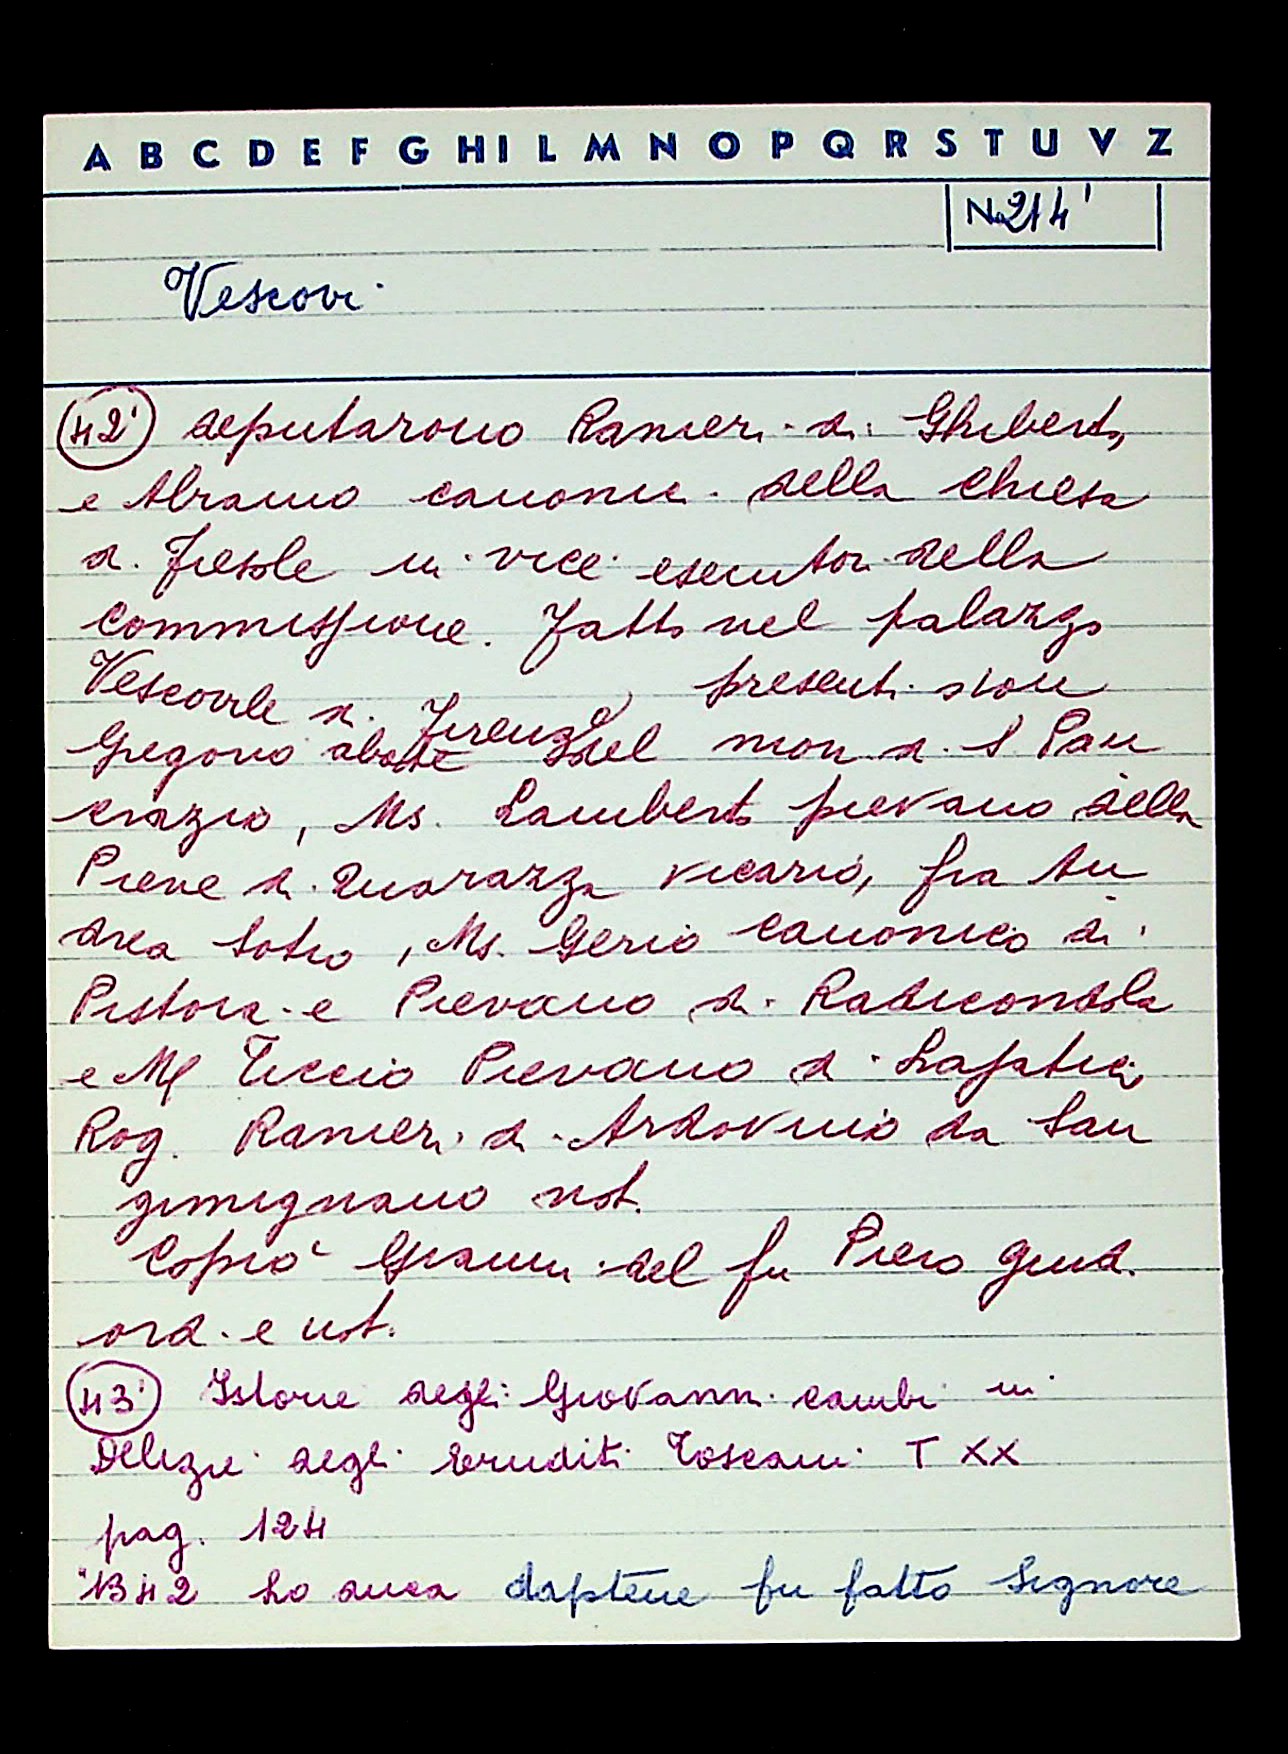 A B C D E F G H I L M N O P Q R S T U V Z
No 214'
Vescovi
42' deputarono Ranieri di Ghiberto,
e Abramo canonici della Chiesa
di Fiesole in vice esecutori della
Commissione. Fatto nel palazzo
Vescovile di Firenze, presenti
Gregorio abate del mon di S. Pan
crazio, Ms. Lamberto pievano della
Pieve di Quarazza vicario, fra An
drea Sotio, Ms. Gerio canonico di
Pistoia e Pievano di Radicondola
e Ms Ticcio Pievano di
Rog. Ranieri di Ardovinio da San
gimignano not.
Copiò Giovanni del fu Piero giud.
ord. e not.
43' Istorie degli Giovanni Cambi in
Delizie degli Eruditi Toscani T XX
pag. 124
1342 lo duca fu fatto Signore